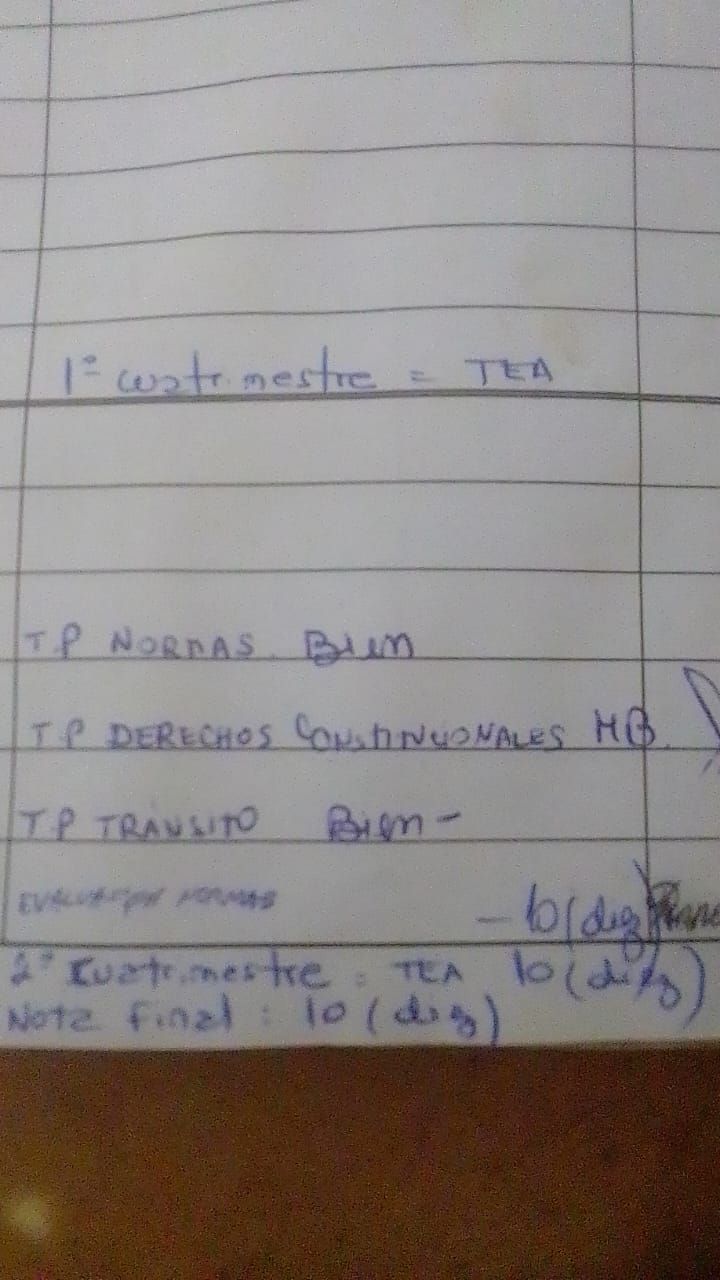 1º cuatrimestre = TEA
TP NORMAS. Bien
TP DERECHOS CONSTITUCIONALES MB.
TP TRÁNSITO Bien -
EVALUACIÓN NORMAS - 10 (diez)
2º Cuatrimestre : TEA 10 (diez)
Nota final : 10 (diez)